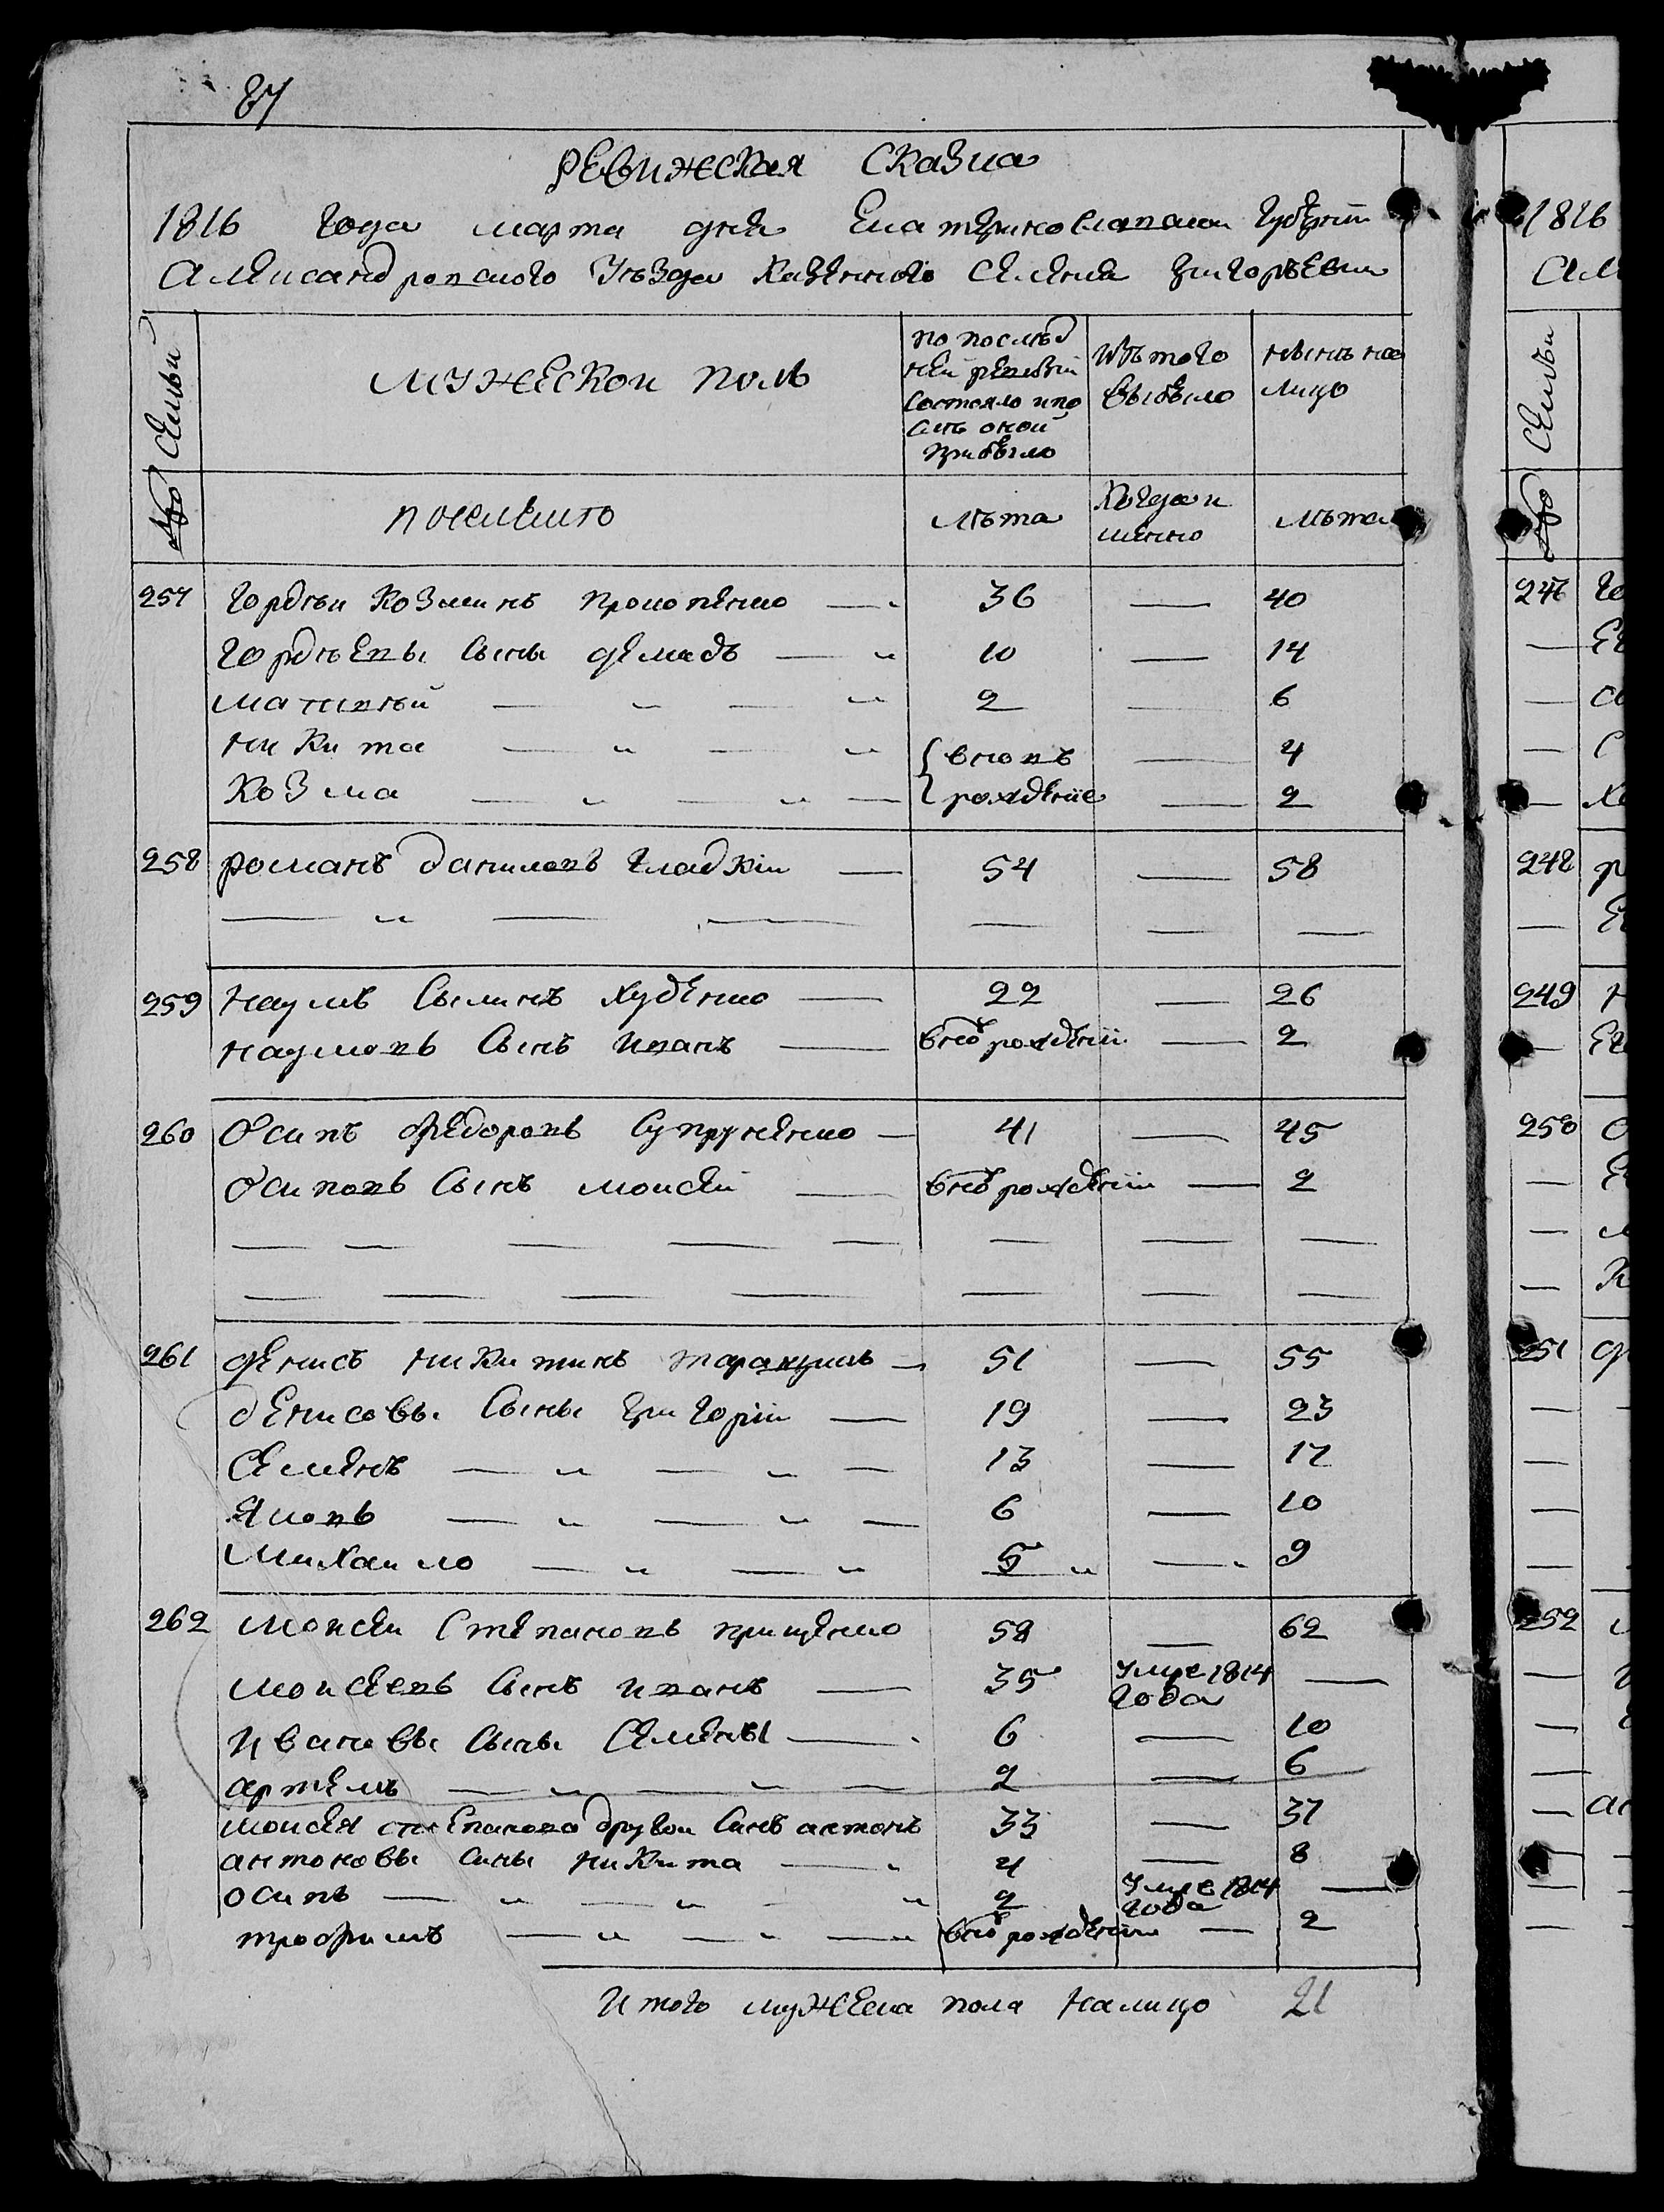 87
Ревижская Сказка
1816 года марта дня Екатеринославской Губернии
Александровского Уезда Казенного Селения Григорьевки
№ Семьи
Мужескои полъ
по послѣд
ней ревизіи
состояло и по
слѣ оной
прибыло
Изъ того
выбыло
Нынѣ на
лицо
лѣта
Когда и
менно
лѣта
257 Гордѣи Козминъ Прокопенко — 36 — 40
Гордѣевы Сыны демидъ — 10 — 14
Матвѣй — 2 — 6
Никита — { вновъ — 4
Козма — { рождение — 2
258 романъ даниловъ Гладкіи — 54 — 58
259 Наумъ Силинъ Худенко — 22 — 26
Наумовъ Сынъ Иванъ — внов рожденіи — 2
260 Осипъ Федоровъ Супруненко — 41 — 45
Осиповъ Сынъ моисей — внов рожденіи — 2
261 денисъ Никитинъ — 51 — 55
денисовы Сыны Григоріи — 19 — 23
Семенъ — 13 — 17
Яковъ — 6 — 10
Михаило — 5 — 9
262 Моисеи Степановъ прищенко 58 — 62
Моисеевъ Сынъ Иванъ — 35 Умре 1814 года —
Ивановы Сыны Семенъ — 6 — 10
артемъ — 2 — 6
моисея степанова другои Синъ антонъ 33 — 37
антоновы Сины Никита — 4 — 8
осипъ — 2 Умре 1814 года —
трофимъ — внов рожденіи — 2
Итого мужеска пола налицо 21
1816
247
248
249
250
251
252